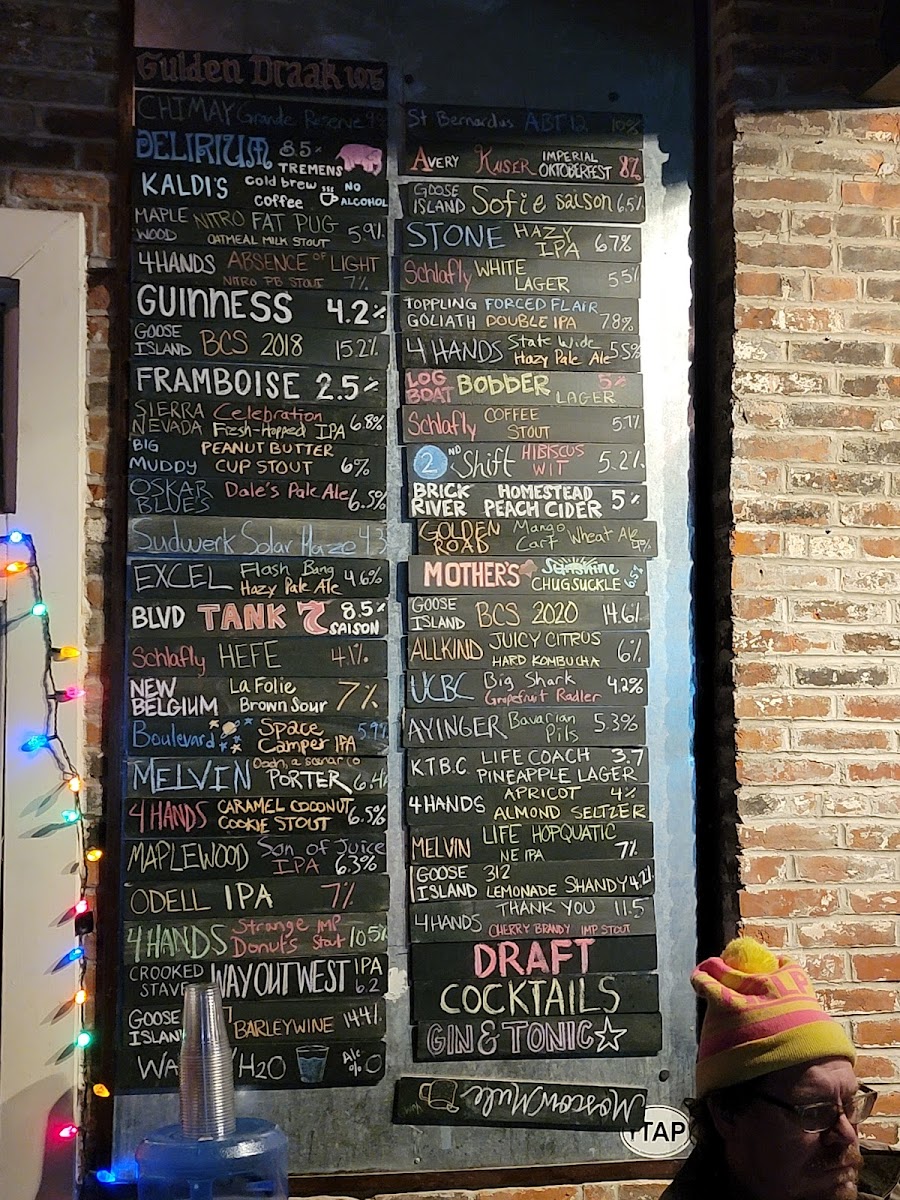 Gulden Draak 10.5
CHIMAY Grande Reserve
DELIRIUM 8.5%
TREMENS
KALDI'S cold brew NO
coffee ALCOHOL
MAPLE NITRO FAT PUG 5.9%
WOOD OATMEAL MILK STOUT
4HANDS ABSENCE OF LIGHT
NITRO PB STOUT 7%
GUINNESS 4.2%
GOOSE
ISLAND BCS 2018 15.2%
FRAMBOISE 2.5%
SIERRA Celebration 6.8%
NEVADA Fresh-Hopped IPA
BIG PEANUT BUTTER
MUDDY CUP STOUT 6%
OSKAR Dale's Pale Ale 6.5%
BLUES
Sudwerk Solar Haze 4.3
EXCEL Flash Bang 4.6%
Hazy Pale Ale
BLVD TANK 7 8.5%
SAISON
Schlafly HEFE 4.1%
NEW La Folie 7%
BELGIUM Brown Sour
Boulevard Space 5.9%
Camper IPA
MELVIN Oooh, a scenario
PORTER 6.4%
4HANDS CARAMEL COCONUT 6.5%
COOKIE STOUT
MAPLEWOOD Son of Juice
IPA 6.3%
ODELL IPA 7%
4HANDS Strange IMP 10.5%
Donuts Stout
CROOKED WAY OUT WEST IPA
STAVE 6.2
GOOSE
ISLAND BARLEYWINE 14.4%
WA H2O Alc 0
%
St Bernardus ABT 12 10%
AVERY KAISER IMPERIAL 8%
OKTOBERFEST
GOOSE
ISLAND Sofie SAISON 6.5%
STONE HAZY 6.7%
IPA
Schlafly WHITE 5.5%
LAGER
TOPPLING FORCED FLAIR
GOLIATH DOUBLE IPA 7.8%
4HANDS State Wide 5.5%
Hazy Pale Ale
LOG BOBBER 5%
BOAT LAGER
Schlafly COFFEE 5.7%
STOUT
2ND Shift HIBISCUS 5.2%
WIT
BRICK HOMESTEAD 5%
RIVER PEACH CIDER
GOLDEN Mango
ROAD Cart Wheat Ale
MOTHER'S Sunshine 6.5%
CHUGSUCKLE
GOOSE
ISLAND BCS 2020 14.6%
ALLKIND JUICY CITRUS 6%
HARD KOMBUCHA
UCBC Big Shark 4.2%
Grapefruit Radler
AYINGER Bavarian 5.3%
Pils
K.T.B.C. LIFE COACH 3.7
PINEAPPLE LAGER
4HANDS APRICOT 4%
ALMOND SELTZER
MELVIN LIFE HOPQUATIC
NE IPA 7%
GOOSE 312
ISLAND LEMONADE SHANDY 4.2%
4HANDS THANK YOU 11.5
CHERRY BRANDY IMP STOUT
DRAFT
COCKTAILS
GIN & TONIC
Moscow Mule
TAP